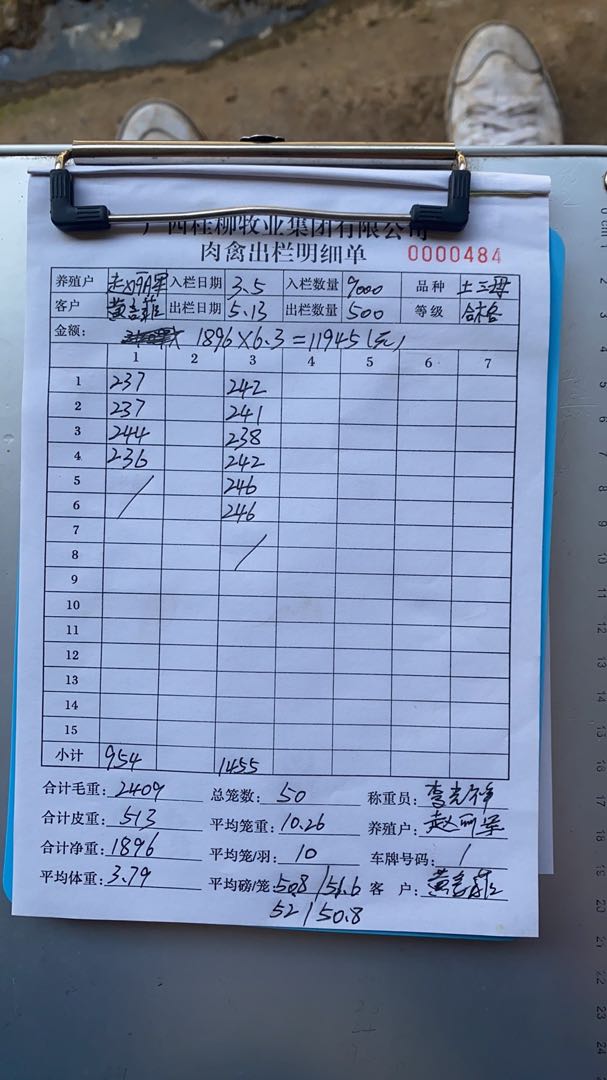 广西桂柳牧业集团有限公司
肉禽出栏明细单 0000484
养殖户 赵丽军 入栏日期 3.5 入栏数量 9000 品种 土三母
客户 出栏日期 5.13 出栏数量 500 等级 合格
金额: 1896×6.3=11945(元)
1 2 3 4 5 6 7
1 237 242
2 237 241
3 244 238
4 236 242
5 / 246
6 246
7
8 /
9
10
11
12
13
14
15
小计 954 1455
合计毛重: 2409 总笼数: 50 称重员:
合计皮重: 513 平均笼重: 10.26 养殖户: 赵丽军
合计净重: 1896 平均笼/羽: 10 车牌号码: /
平均体重: 3.79 平均磅/笼 50.8/51.6 客 户:
52/50.8